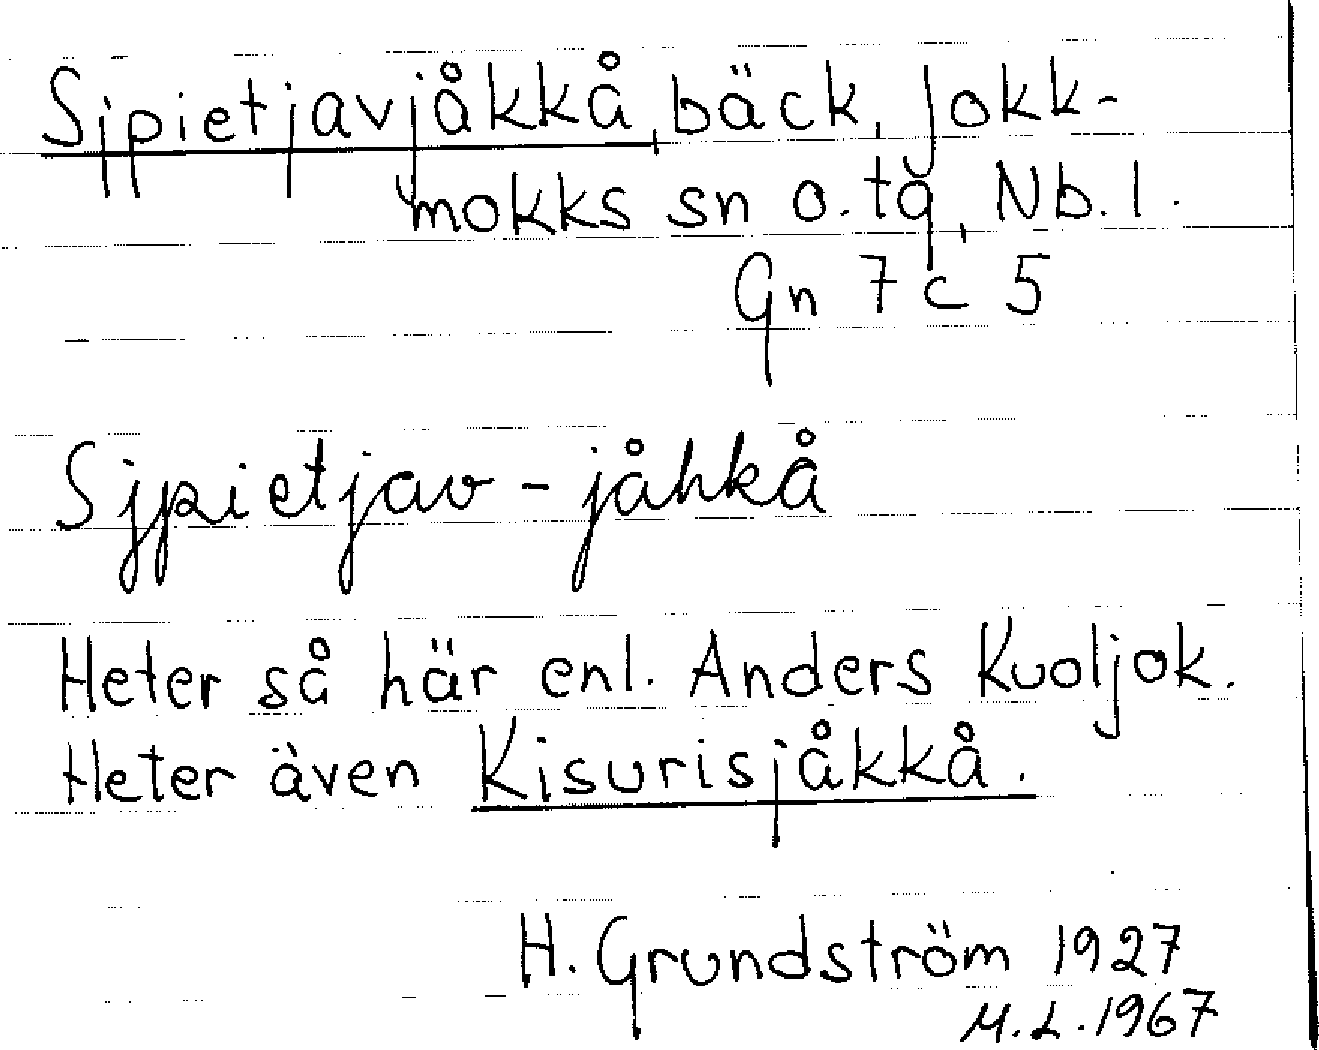 Sjpietjavjåkkå, bäck, Jokk-
mokks sn o. tg, Nb. l.
Gn 7 c 5
Sjpietjav - jåhkå
Heter så här enl. Anders Kuoljok.
Heter även Kisurisjåkkå.
H. Grundström 1927
M.L. 1967